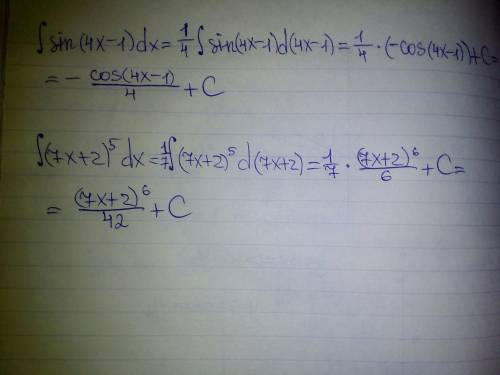 ∫sin(4x-1)dx = 1/4 ∫sin(4x-1)d(4x-1) = 1/4 · (-cos(4x-1)) + C =
= - cos(4x-1)/4 + C
∫(7x+2)^5 dx = 1/7 ∫(7x+2)^5 d(7x+2) = 1/7 · (7x+2)^6/6 + C =
= (7x+2)^6/42 + C